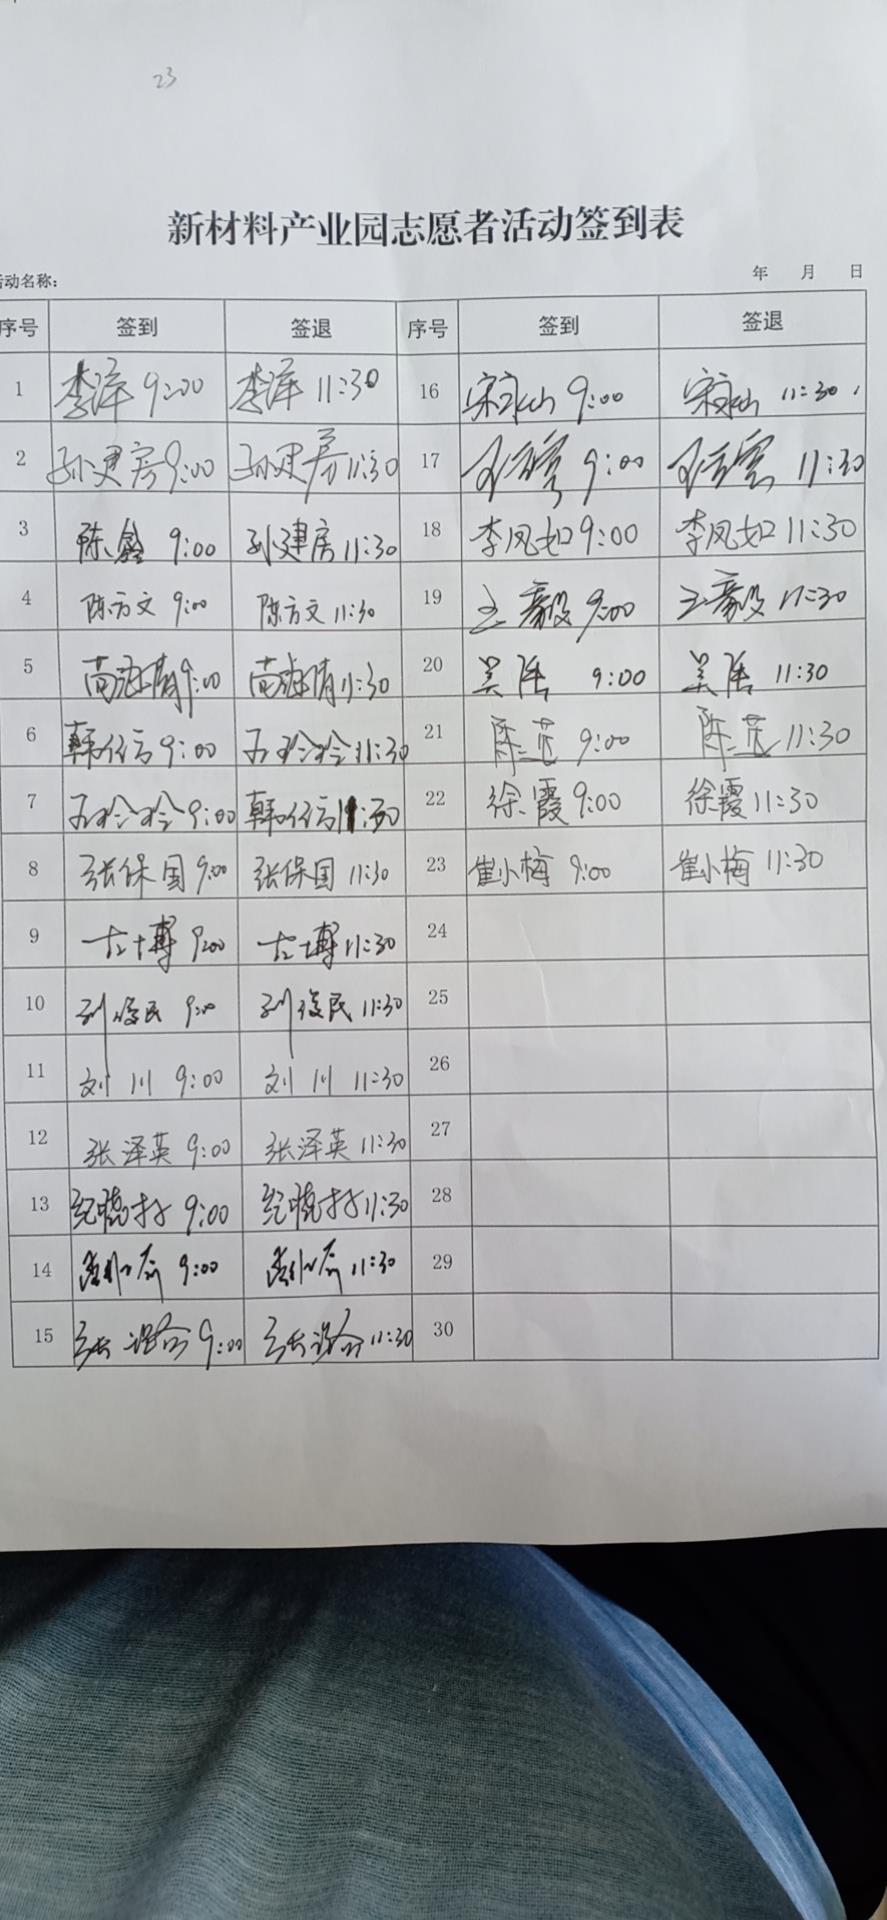 23
新材料产业园志愿者活动签到表
活动名称： 年 月 日
序号 签到 签退 序号 签到 签退
1 李泽 9:00 李泽 11:30 16 9:00 11:30
2 孙建房 9:00 孙建房 11:30 17 9:00 11:30
3 陈 9:00 孙建房 11:30 18 李凤如 9:00 李凤如 11:30
4 陈方文 9:00 陈方文 11:30 19 王毅 9:00 王毅 11:30
5 9:00 11:30 20 吴 9:00 吴 11:30
6 韩 9:00 11:30 21 陈 9:00 陈 11:30
7 9:00 韩 11:30 22 徐霞 9:00 徐霞 11:30
8 张保国 9:00 张保国 11:30 23 崔小梅 9:00 崔小梅 11:30
9 9:00 11:30 24
10 9:00 11:30 25
11 刘川 9:00 刘川 11:30 26
12 张泽英 9:00 张泽英 11:30 27
13 纪晓 9:00 纪晓 11:30 28
14 9:00 11:30 29
15 9:00 11:30 30